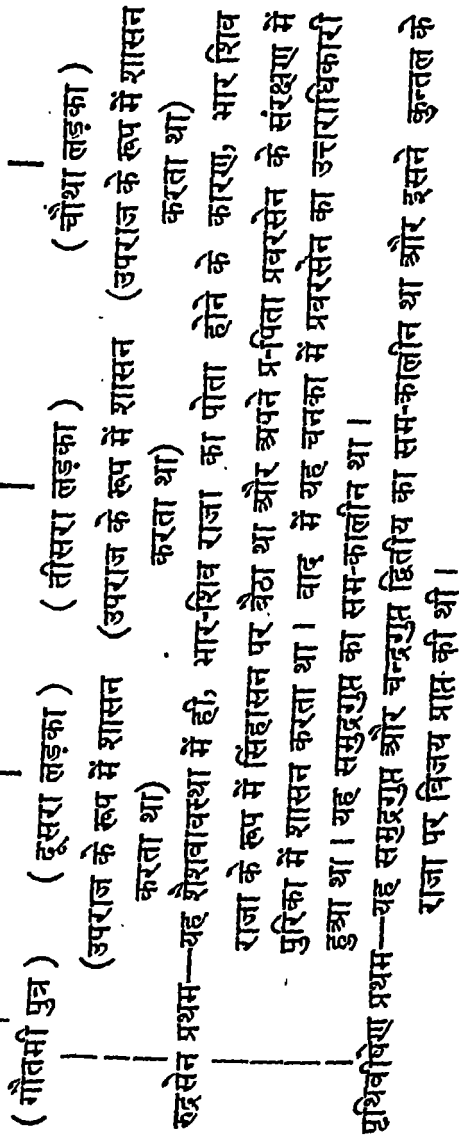 ( गौतमी पुत्र ) ( दूसरा लड़का ) ( तीसरा लड़का ) ( चौथा लड़का )
(उपराज के रूप में शासन (उपराज के रूप में शासन (उपराज के रूप में शासन
करता था) करता था) करता था)
रुद्रसेन प्रथम—यह शैशवावस्था में ही, भार-शिव राजा का पोता होने के कारण, भार शिव
राजा के रूप में सिंहासन पर बैठा था और अपने प्र-पिता प्रवरसेन के संरक्षण में
पुरिका में शासन करता था । बाद में यह चनका में प्रवरसेन का उत्तराधिकारी
हुआ था । यह समुद्रगुप्त का सम-कालीन था ।
पृथिवीषेण प्रथम—यह समुद्रगुप्त और चन्द्रगुप्त द्वितीय का सम-कालीन था और इसने कुन्तल के
राजा पर विजय प्राप्त की थी ।